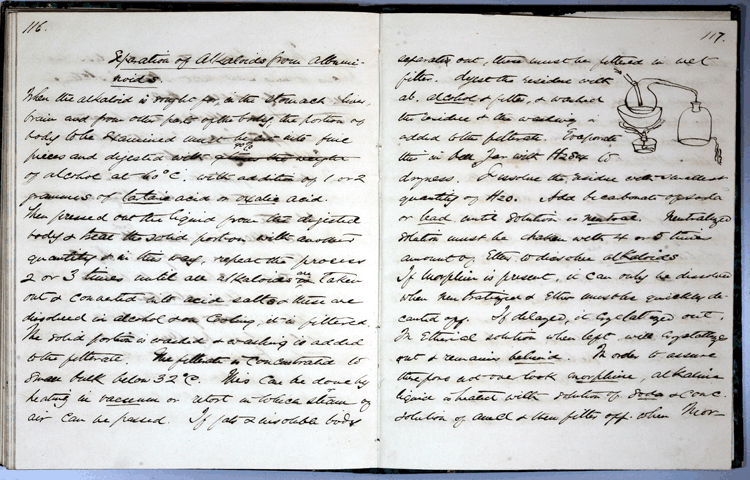 116.
Separation of Alkaloids from Albumi-
noids.
When the alkaloid is sought for, in the stomach, liver,
brain and from other parts of the body, the portion of
body to be examined must be into fine
pieces and digested with
90%
of alcohol at 40°C with addition of 1 or 2
grammes of tartaric acid or oxalic acid.
Then pressed out the liquid from the digested
body & treat the solid portion with another
quantity & in this way, repeat the process
2 or 3 times until all alkaloids are taken
out & converted into acid salts & these are
dissolved in alcohol & on cooling, it is filtered.
The solid portion is washed & washing is added
to the filtrate. The filtrate is concentrated to
small bulk below 32°C. This can be done by
heating in vacuum or retort in which steam or
air can be passed. If fats & insoluble body
117.
separates out, these must be filtered in wet
filter. Digest the residue with
ab. alcohol & filter, & washed
the residue & the washing is
added to the filtrate. Evaporate
this in Jar with H2SO4 to
dryness. Dissolve the residue with smallest
quantity of H2O. Add bicarbonate of soda
or lead until solution is neutral. Neutralized
solution must be shaken with 4 or 5 times
amount of Ether to dissolve alkaloids
If Morphine is present, it can only be dissolved
when neutralized & Ether must be quickly de-
canted off. If delayed, it crystallized out.
In Etherial solution when left, will crystallize
out & remains behind. In order to assure
therefore not one look morphine, alkaline
liquid is heated with solution of soda & conc.
solution of AmCl & then filter off. When Mor-